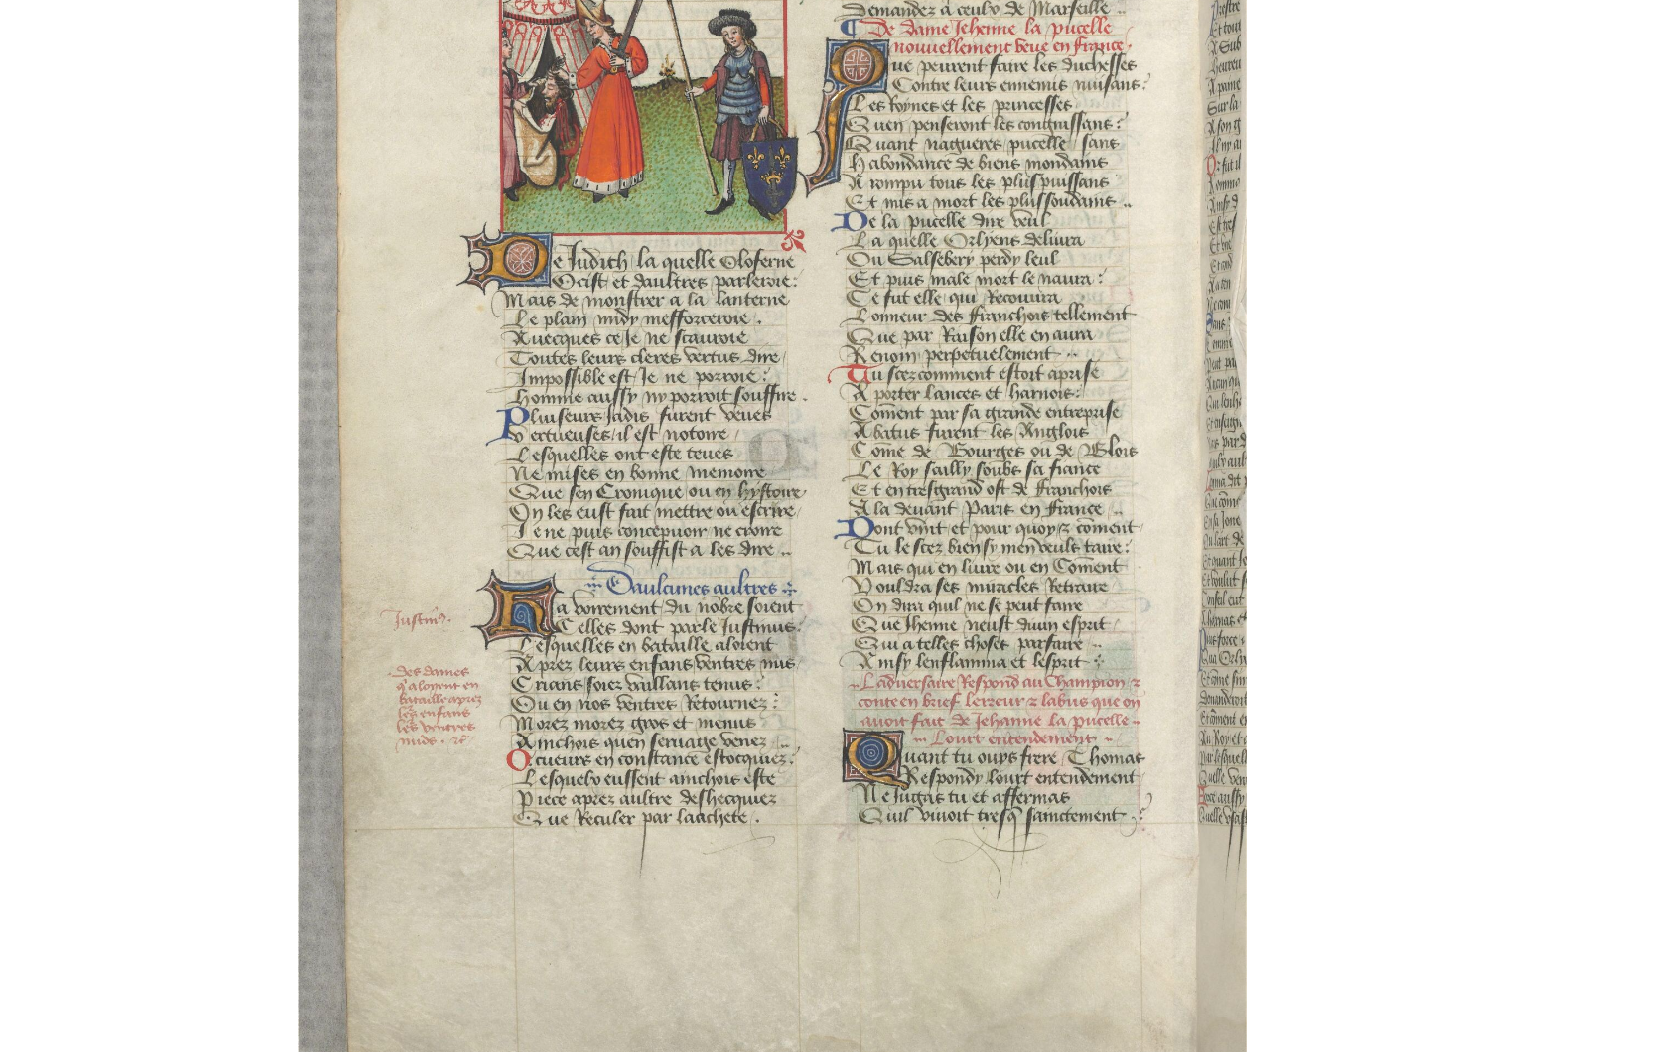 De Judith la quelle Oloferne
Ocist et daultres parleroie:
Mais de monstrer a la lanterne
Le plain midy mefforceroie.
Avecques ce Je ne scauroie
Toutes leurs cleres vertus dire
Impossible est Je ne porroie:
Homme aussy ny porroit souffire.
Pluiseurs Jadis furent veues
Vertueuses il est notoire
Lesquelles ont este teues
Ne mises en bonne memoire
Que sen Cronique ou en hystoire
On les eust fait mettre ou escrire
Je ne puis concepuoir ne croire
Que cest an souffist a les dire ..
Daulcunes aultres
Ha voirement du nobre soient
Celles dont parle Justinus:
Lesquelles en bataille aloient
Aprez leurs enfans ventres nus
Crians soiez vaillans tenus:
Ou en nos ventres Retournez:
Morez morez gros et menus
Ainchois quen seruage venez ..
O cueurs en constance estocquiez.
Lesquelx eussent ainchois este
Piece aprez aultre deshecquiez
Que Reculer par laachete.
Justin9.
des dames
q aloyent en
bataille aprez
les enfans
les ventres
nuds. &c
Demandez a ceulx de Marseille ..
De dame Jehenne la pucelle
nouuellement veue en France.
Que peurent faire les duchesses
Contre leurs ennemis nuisans:
Les Roynes et les princesses
Quen penseront les congnissans:
Quant nagueres pucelle sans
Habondance de biens mondains
A rompu tous les plus puissans
Et mis a mort les plus soudains ..
De la pucelle dire veul
La quelle Orliens deliura
Ou Salsebery perdy leul
Et puis male mort le naura:
Ce fut elle qui Recouura
Lonneur des Franchois tellement
Que par Raison elle en aura
Renom perpetuelement ..
Tu scez comment estoit aprise
A porter lances et harnois:
Coment par sa grande entreprise
Abatus furent les Anglois
Come de Bourges ou de Blois
Le Roy sailly soubs sa fiance
Et en tresgrand ost de Franchois
Ala deuant Paris en France ..
Dont vint et pour quoy & coment
Tu le scez bien sy men veuls taire:
Mais qui en liure ou en Coment
Vouldra ses miracles Retraire
On dira quil ne se peut faire
Que Jhenne neust diuin esprit
Qui a telles choses parfaire
Ainsy lenflamma et lesprit :
Laduersaire Respond au Champion &
conte en brief lerreur & labus que on
auoit fait de Jehanne la pucelle ..
Lourt entendement
Quant tu ouys frere Thomas
Respondy lourt entendement
Ne Jugas tu et affermas
Quil viuoit tresq sainctement: